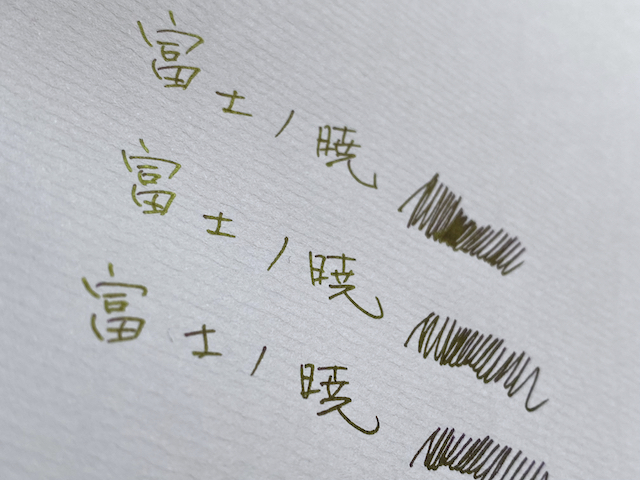 富士ノ暁
富士ノ暁
富士ノ暁